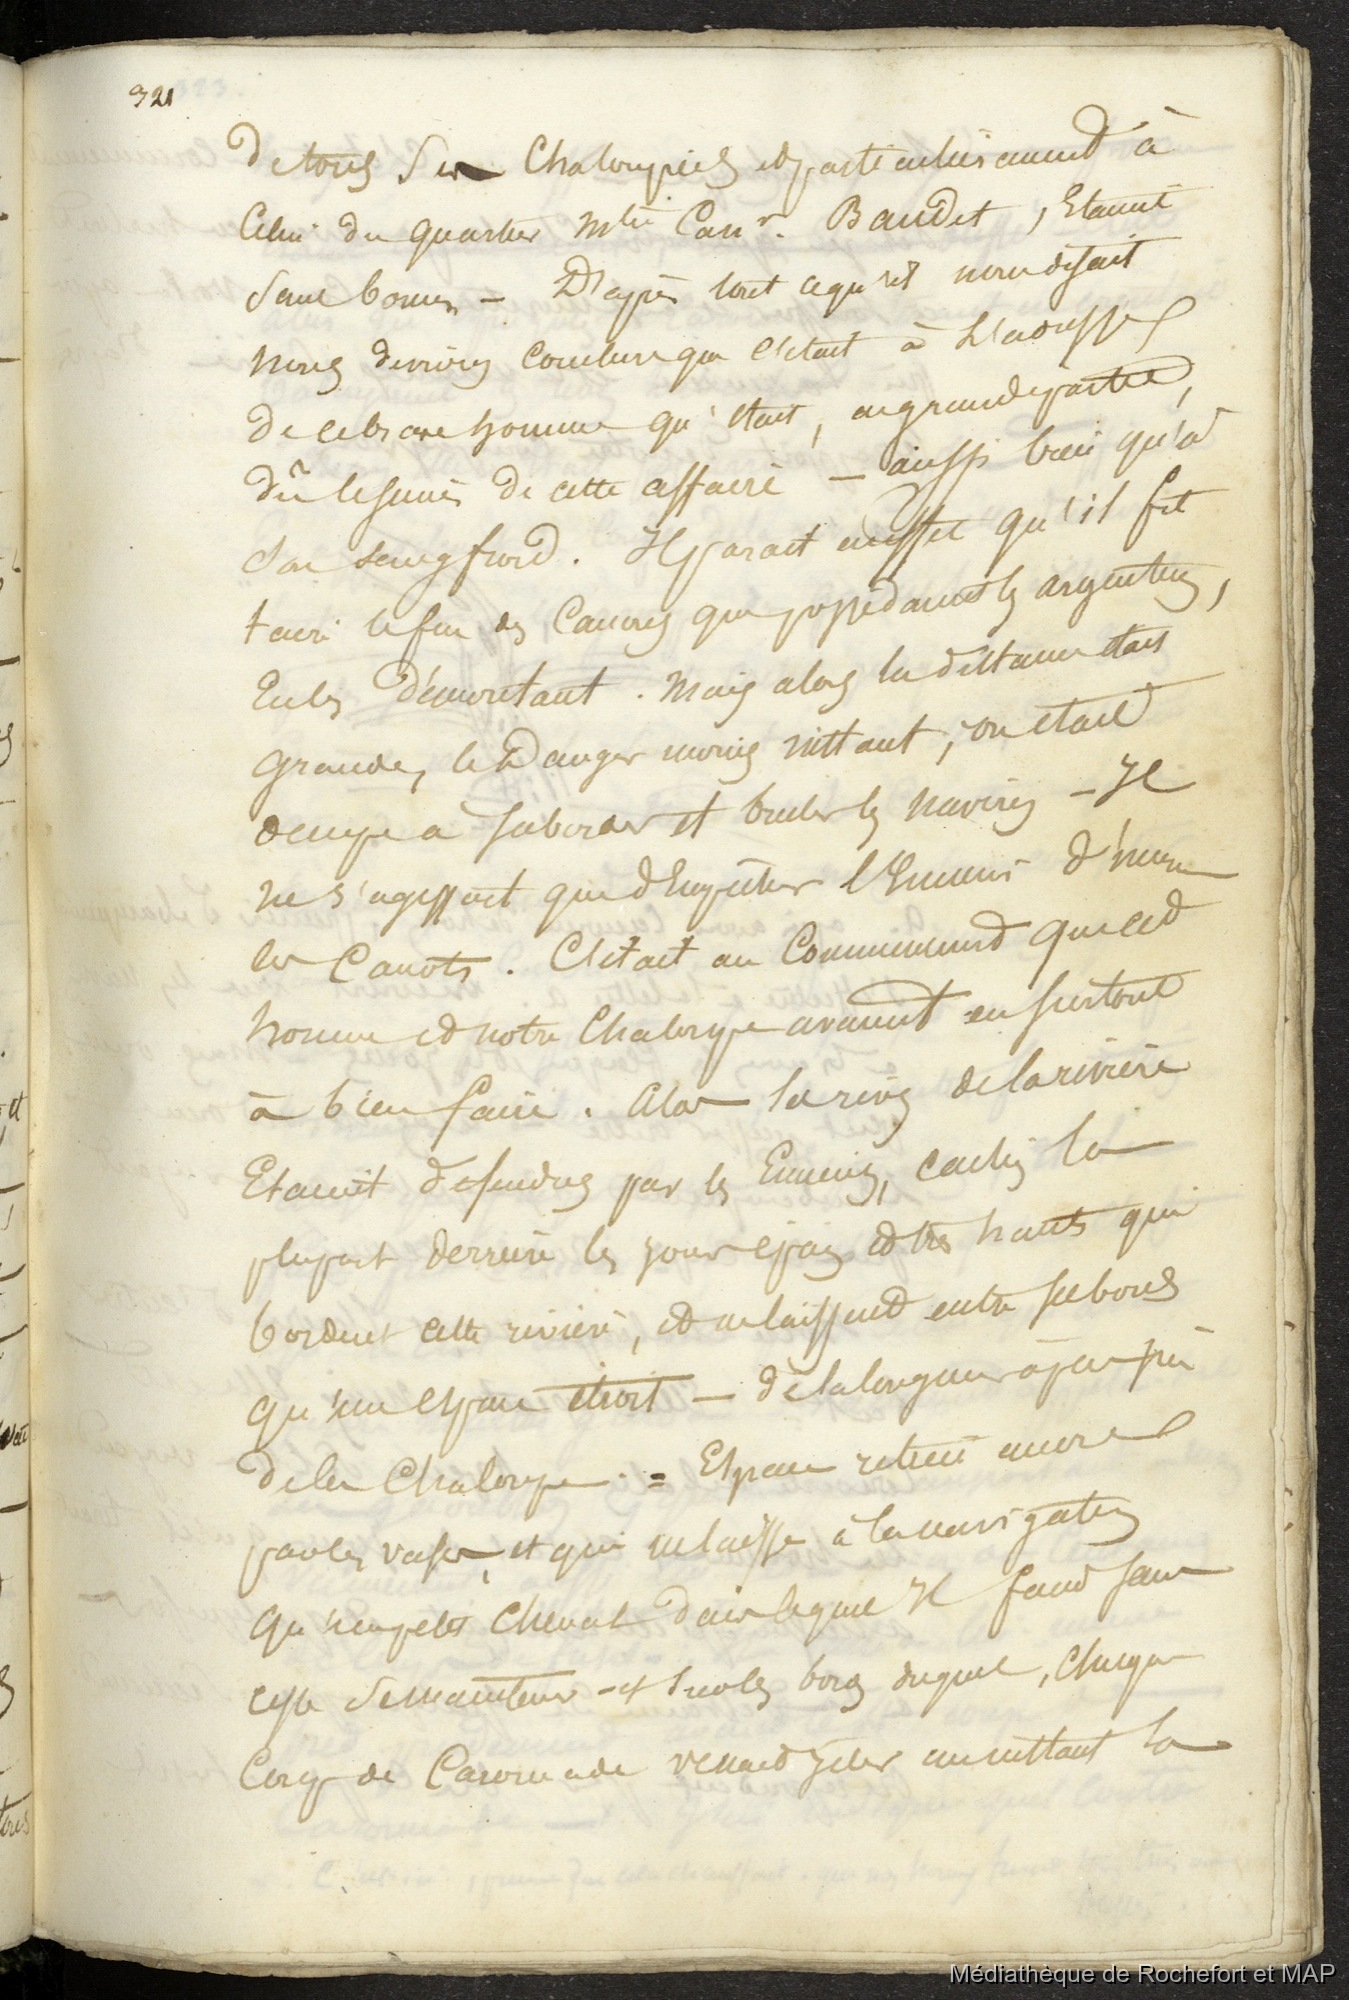 321
De tous Ses Chaloupiers et particulièrement à
Celui du quartier Mtre Cann.r Baudet, Etaient
Sans bornes – D'après tout ce qu'il nous disait
nous devions Conclure que C'était à L'adresse
de ce brave homme qu'était, en grande partie,
dû le succès de cette affaire – aussi bien qu'à
Son Sang froid. Il parait en effet qu'il fit
taire le feu des Canons que possédaient les argentins,
En les démontant. Mais alors la distance était
grande, le Danger moins instant, on était
occupé à Saborder et bruler les navires – Il
ne s'agissait que d'Empêcher l'Ennemi d'
les Canots. C'était au Commencement que cet
homme et notre Chaloupe avaient eu surtout
à bien faire. Alors les rives de la rivière
Etaient défendues par les Ennemis, cachés la
plupart derrière les joncs épais et très hauts qui
bordent cette rivière, et ne laissent entre ses bords
qu'un espace étroit – de la longueur à peu près
de la Chaloupe. = Espace retréci encore
par les vases, et qui ne laisse à la navigation
qu'un petit Chenal dans lequel Il faut sans
cesse Se maintenir – et sur les bords duquel, chaque
Coup de Caronade venait jeter en mettant la
Médiathèque de Rochefort et MAP